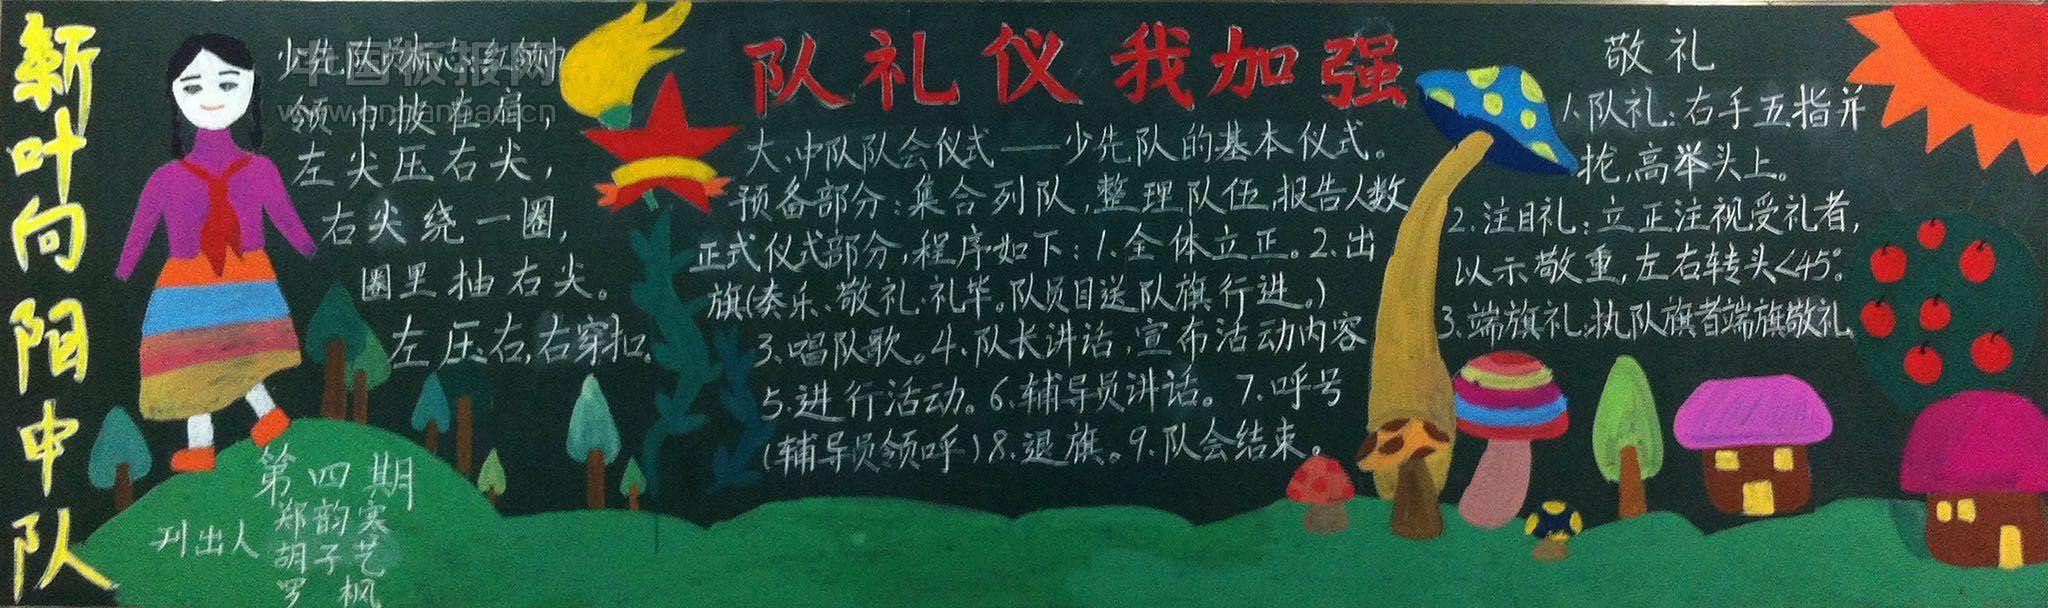 新叶向阳中队
少先队员标志:红领巾
领巾披在肩，
左尖压右尖，
右尖绕一圈，
圈里抽右尖。
左压右,右穿扣。
中国板报网
第四期
刊出人
郑韵寒
胡子艺
罗枫
队礼仪我加强
大、中队队会仪式——少先队的基本仪式。
预备部分:集合列队,整理队伍,报告人数
正式仪式部分,程序如下:1.全体立正。2.出
旗(奏乐、敬礼、礼毕。队员目送队旗行进。)
3.唱队歌。4.队长讲话,宣布活动内容
5.进行活动。6.辅导员讲话。7.呼号
(辅导员领呼)8.退旗。9.队会结束。
敬礼
1.队礼:右手五指并
拢,高举头上。
2.注目礼:立正注视受礼者,
以示敬重,左右转头<45°。
3.端旗礼:执队旗者端旗敬礼